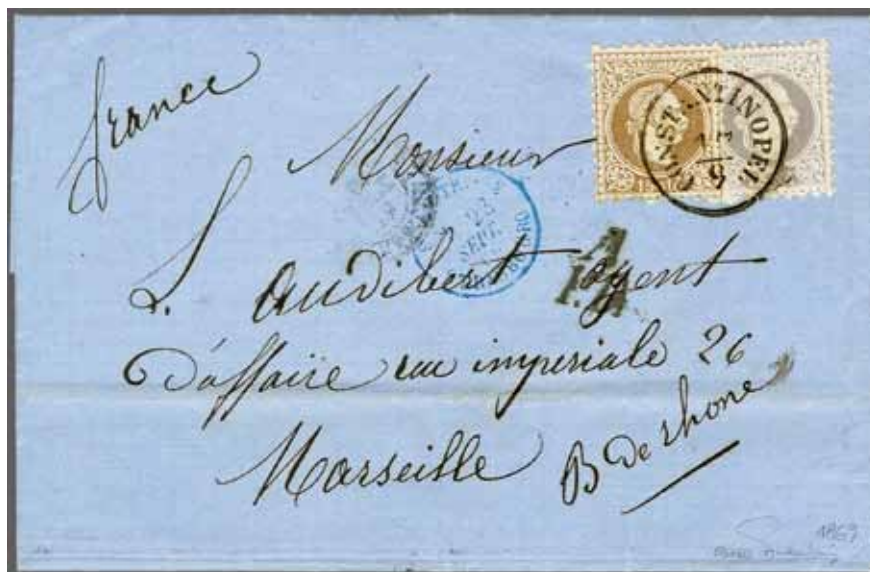 france
CONSTANTINOPEL
17
9
Monsieur
23
SEPT.
L. Audibert agent
A
d'affaire rue imperiale 26
Marseille
B de rhone
1869